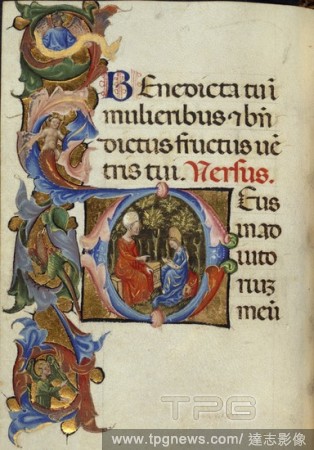 BEnedicta tu i
mulieribus ⁊ bn
dictus fructus uẽ
tris tui. Versus.
Eus
in ad
iuto
riuz
meũ
TPG
www.tpgnews.com/達志影像